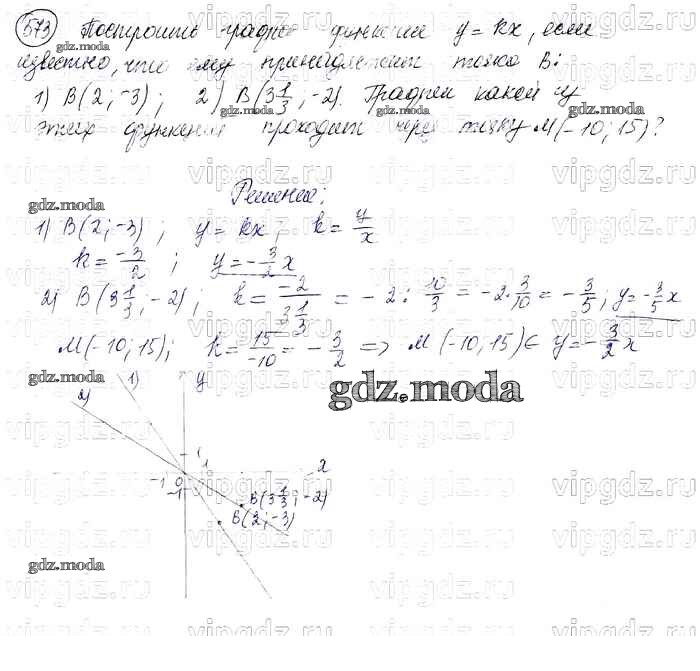 573 Построить график функции y = kx, если
известно, что ему принадлежит точка B:
1) B(2; -3); 2) B(3 1/3; -2). График какой из
этих функций проходит через точку M(-10; 15)?
Решение:
1) B(2; -3); y = kx; k = y/x
k = -3/2; y = -3/2 x
2) B(3 1/3; -2); k = -2/(3 1/3) = -2 : 10/3 = -2 · 3/10 = -3/5; y = -3/5 x
M(-10; 15); k = 15/-10 = -3/2 => M(-10; 15) ∈ y = -3/2 x
2) 1) y
1
1
x
-1 0
-1
B(3 1/3; -2)
B(2; -3)
gdz.moda
vipgdz.ru